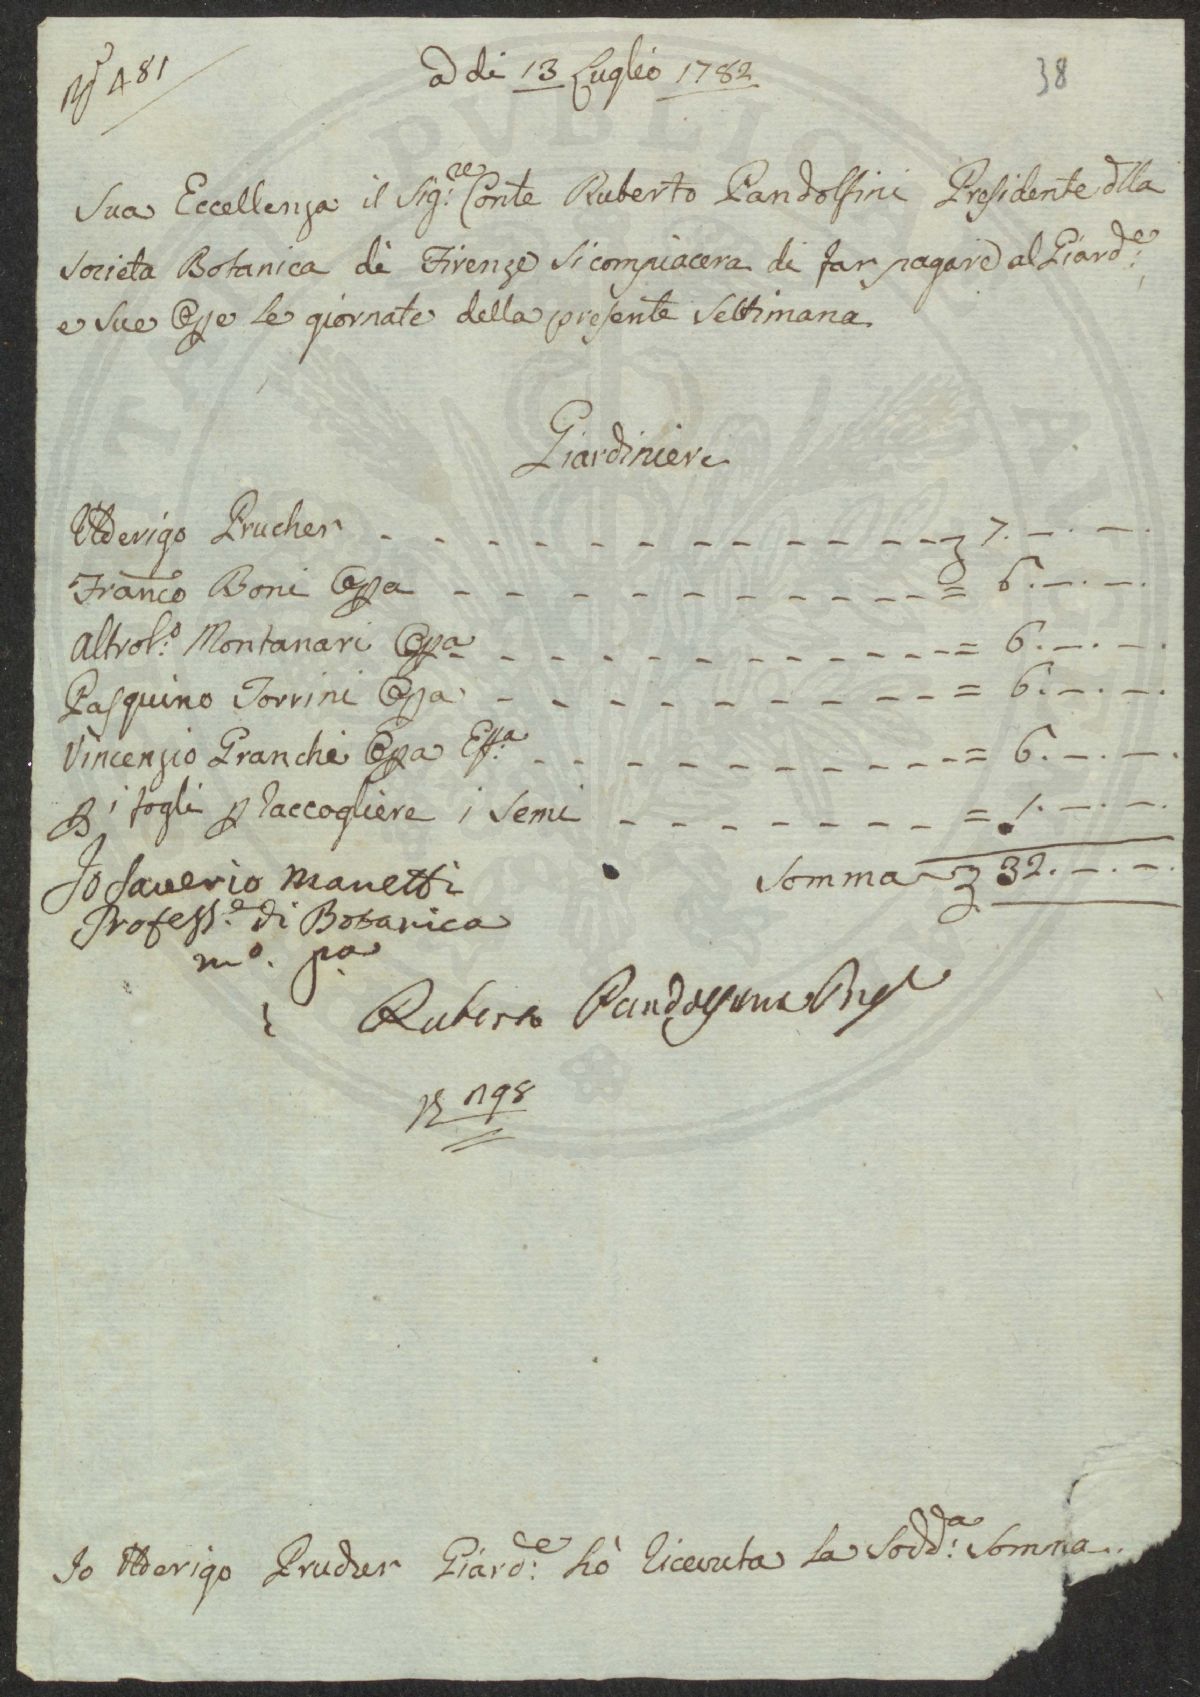 Nº 481
a di 13 Luglio 1782
38
Sua Eccellenza il Sig:re Conte Ruberto Pandolfini Presidente dlla
Società Botanica di Firenze si compiacera di far pagare al Giard:e
e sue Opre le giornate della presente Settimana
Giardiniere
Ulderigo Prucher - - - - - - - - - - - 7. — . — .
Franco Boni Opra - - - - - - - - - = 6. — . — .
Montanari Opra - - - - - - - - - = 6. — . — .
Pasquino Torrini Opra - - - - - - - - - = 6. — . — .
Vincenzio Pranchi Opra - - - - - - - - = 6. — . — .
fogli p raccogliere i Semi - - - - - - - = 1. — . — .
Somma 32. — . — .
Io Saverio Manetti
Profess:e di Botanica
mo. pa
Ruberto Pandolfini Presl
198
Io Ulderigo Prucher Giard:e hò ricevuta la Sodd:a Somma